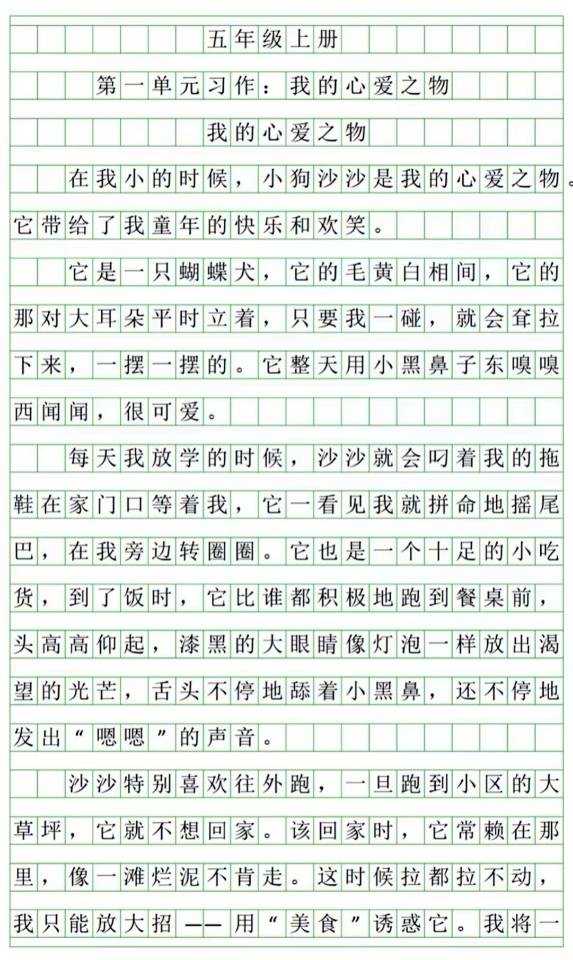 五年级上册
第一单元习作：我的心爱之物
我的心爱之物
在我小的时候，小狗沙沙是我的心爱之物。
它带给了我童年的快乐和欢笑。
它是一只蝴蝶犬，它的毛黄白相间，它的
那对大耳朵平时立着，只要我一碰，就会耷拉
下来，一摆一摆的。它整天用小黑鼻子东嗅嗅
西闻闻，很可爱。
每天我放学的时候，沙沙就会叼着我的拖
鞋在家门口等着我，它一看见我就拼命地摇尾
巴，在我旁边转圈圈。它也是一个十足的小吃
货，到了饭时，它比谁都积极地跑到餐桌前，
头高高仰起，漆黑的大眼睛像灯泡一样放出渴
望的光芒，舌头不停地舔着小黑鼻，还不停地
发出“嗯嗯”的声音。
沙沙特别喜欢往外跑，一旦跑到小区的大
草坪，它就不想回家。该回家时，它常赖在那
里，像一滩烂泥不肯走。这时候拉都拉不动，
我只能放大招——用“美食”诱惑它。我将一